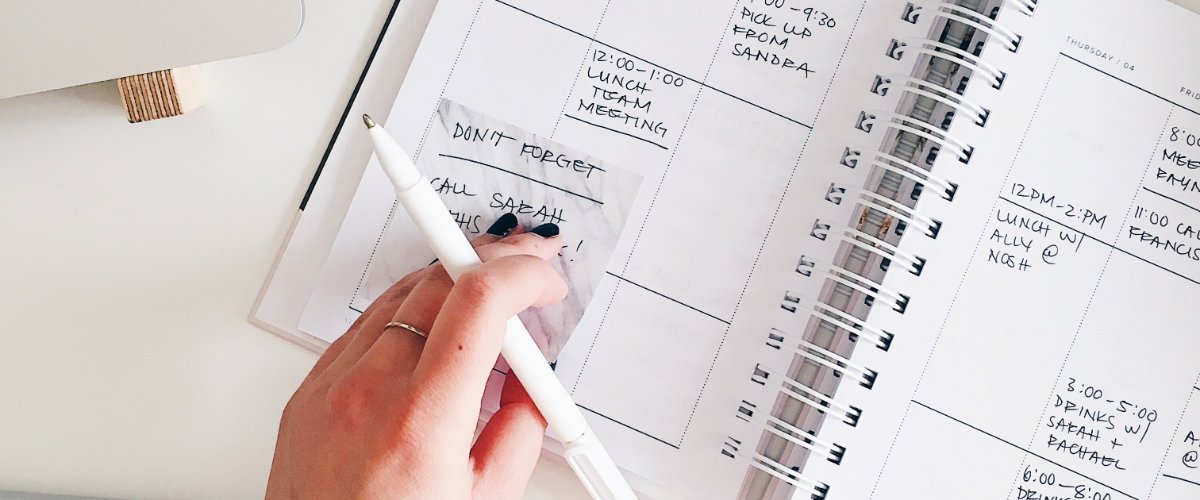 -9:30
PICK UP
FROM
SANDRA
12:00-1:00
LUNCH
TEAM
MEETING
DON'T FORGET
CALL SARAH
THIS
!
THURSDAY / 04
12PM-2:PM
LUNCH W/
ALLY @
NOSH
3:00-5:00
DRINKS W/
SARAH +
RACHAEL
6:00-8:00
8:00
11:00
@